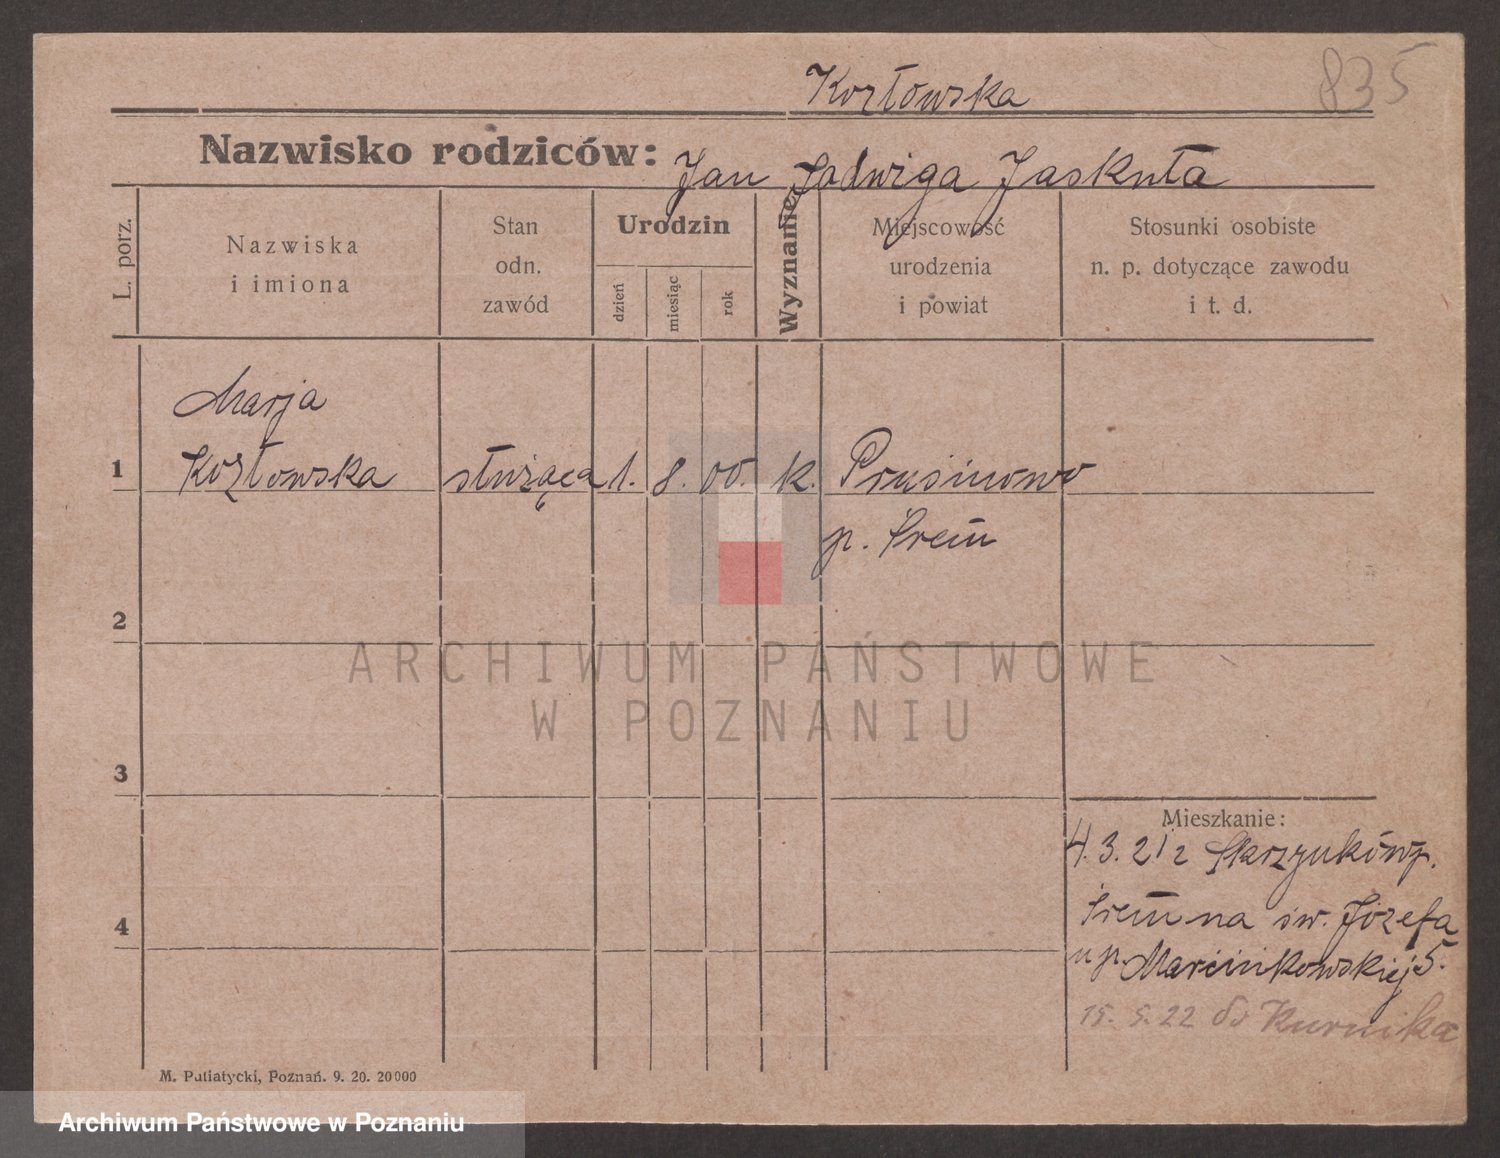 Kozłowska
835
Nazwisko rodziców: Jan Jadwiga Jaskuła
L. porz.
Nazwiska
i imiona
Stan
odn.
zawód
Urodzin
dzień
miesiąc
rok
Wyznanie
Miejscowość
urodzenia
i powiat
Stosunki osobiste
n. p. dotyczące zawodu
i t. d.
Marja
1 Kozłowska służąca 1. 8. 00. k. Prusinowo
p. Śrem
2
ARCHIWUM PAŃSTWOWE
W POZNANIU
3
Mieszkanie:
4.3.21 z p.
4
Śrem na św. Józefa
u p. Marcinkowskiej 5.
15. 5. 22 do Kurnika
M. Putiatycki, Poznań. 9. 20. 20000
Archiwum Państwowe w Poznaniu